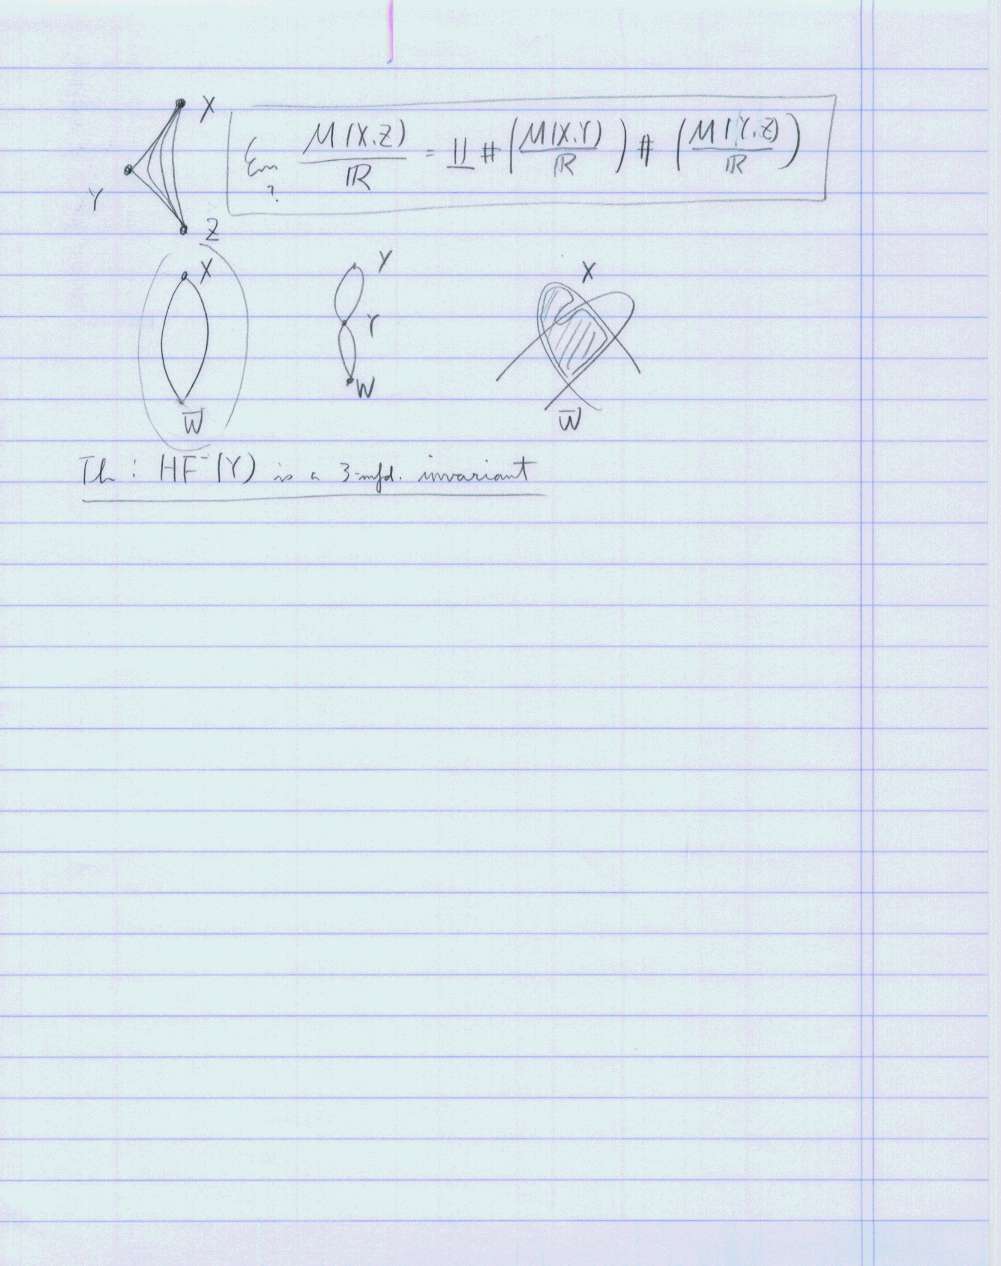 X
Y
Z
M(X,Z)/ℝ = ∐ # (M(X,Y)/ℝ) # (M(Y,Z)/ℝ)
?
X
W̅
Y
Y
W
X
W̅
Th: HF⁻(Y) is a 3-mfd. invariant